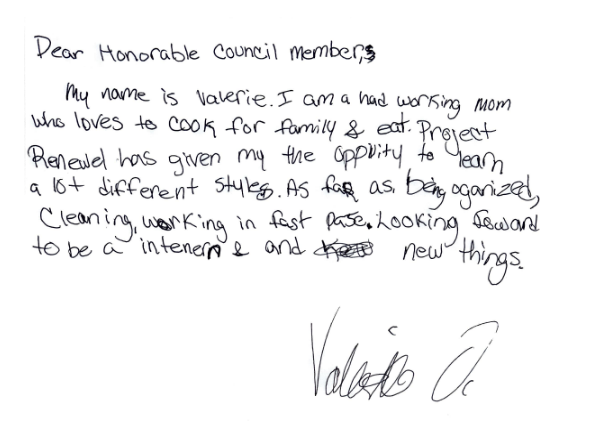 Dear Honorable Council members
My name is Valerie. I am a had working Mom
who loves to cook for family & eat. Project
Renewel has given my the oppuity to learn
a lot different styles. As far as being oganized,
Cleaning, working in fast pase. Looking foward
to be a intenern & and new things.
Valerie J.